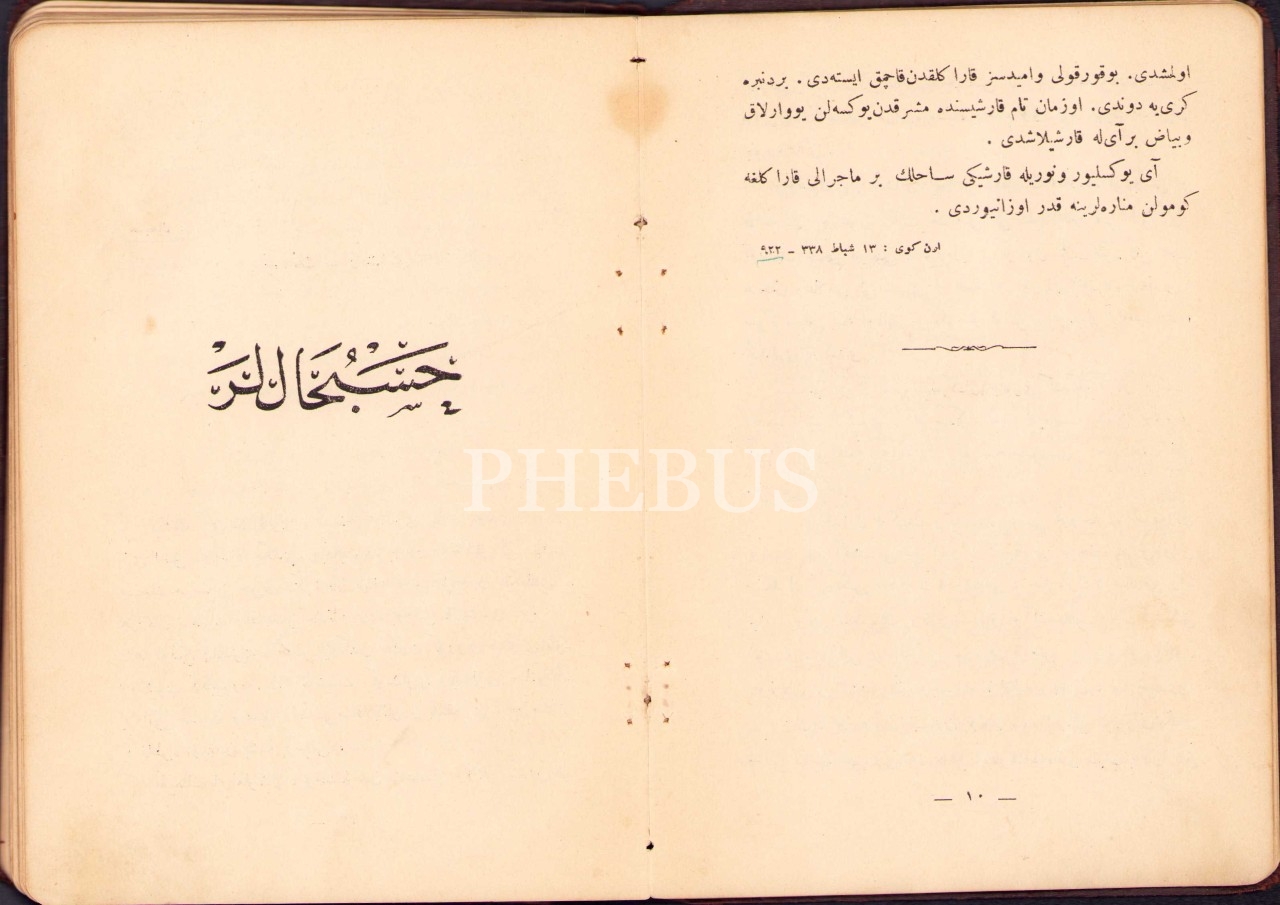 اولمشدی. بوقورقولی وامیدسز قارا کلقدن قاچمق ایسته‌دی. بردنبره
کری‌یه دوندی. اوزمان تام قارشیسنده مشرقدن یوکسه‌لن یووارلاق
وبیاض برآی‌له قارشیلاشدی.
آی یوکسلیور ونوریله قارشیکی ساحلك بر ماجرالی قارا کلغه
کومولن مناره‌لرینه قدر اوزانیوردی.
ارن کوی : ١٣ شباط ٣٣٨ – ٩٢٢
— ١٠ —
حسبحال لر
PHEBUS